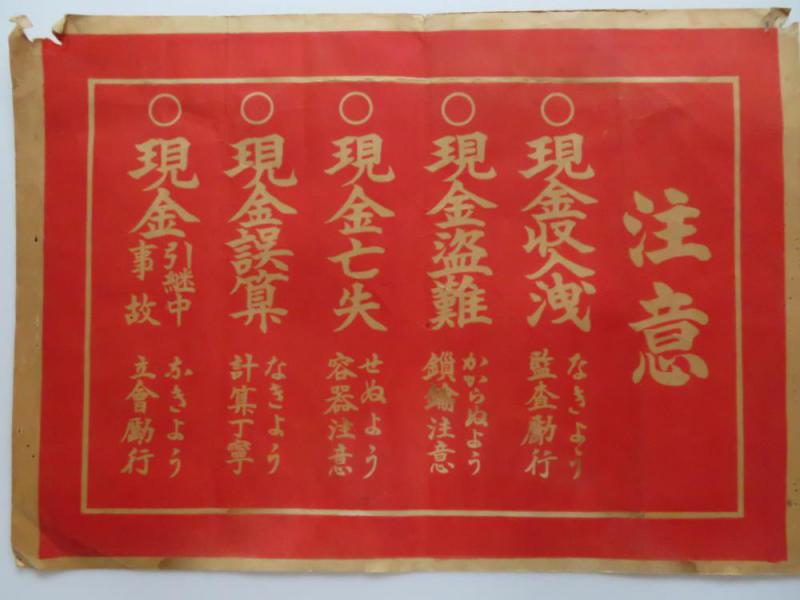 注意
○現金収入洩
なきよう
監査勵行
○現金盗難
かゝらぬよう
鎖鑰注意
○現金亡失
せぬよう
容器注意
○現金誤算
なきよう
計算丁寧
○現金引継中事故
なきよう
立會勵行